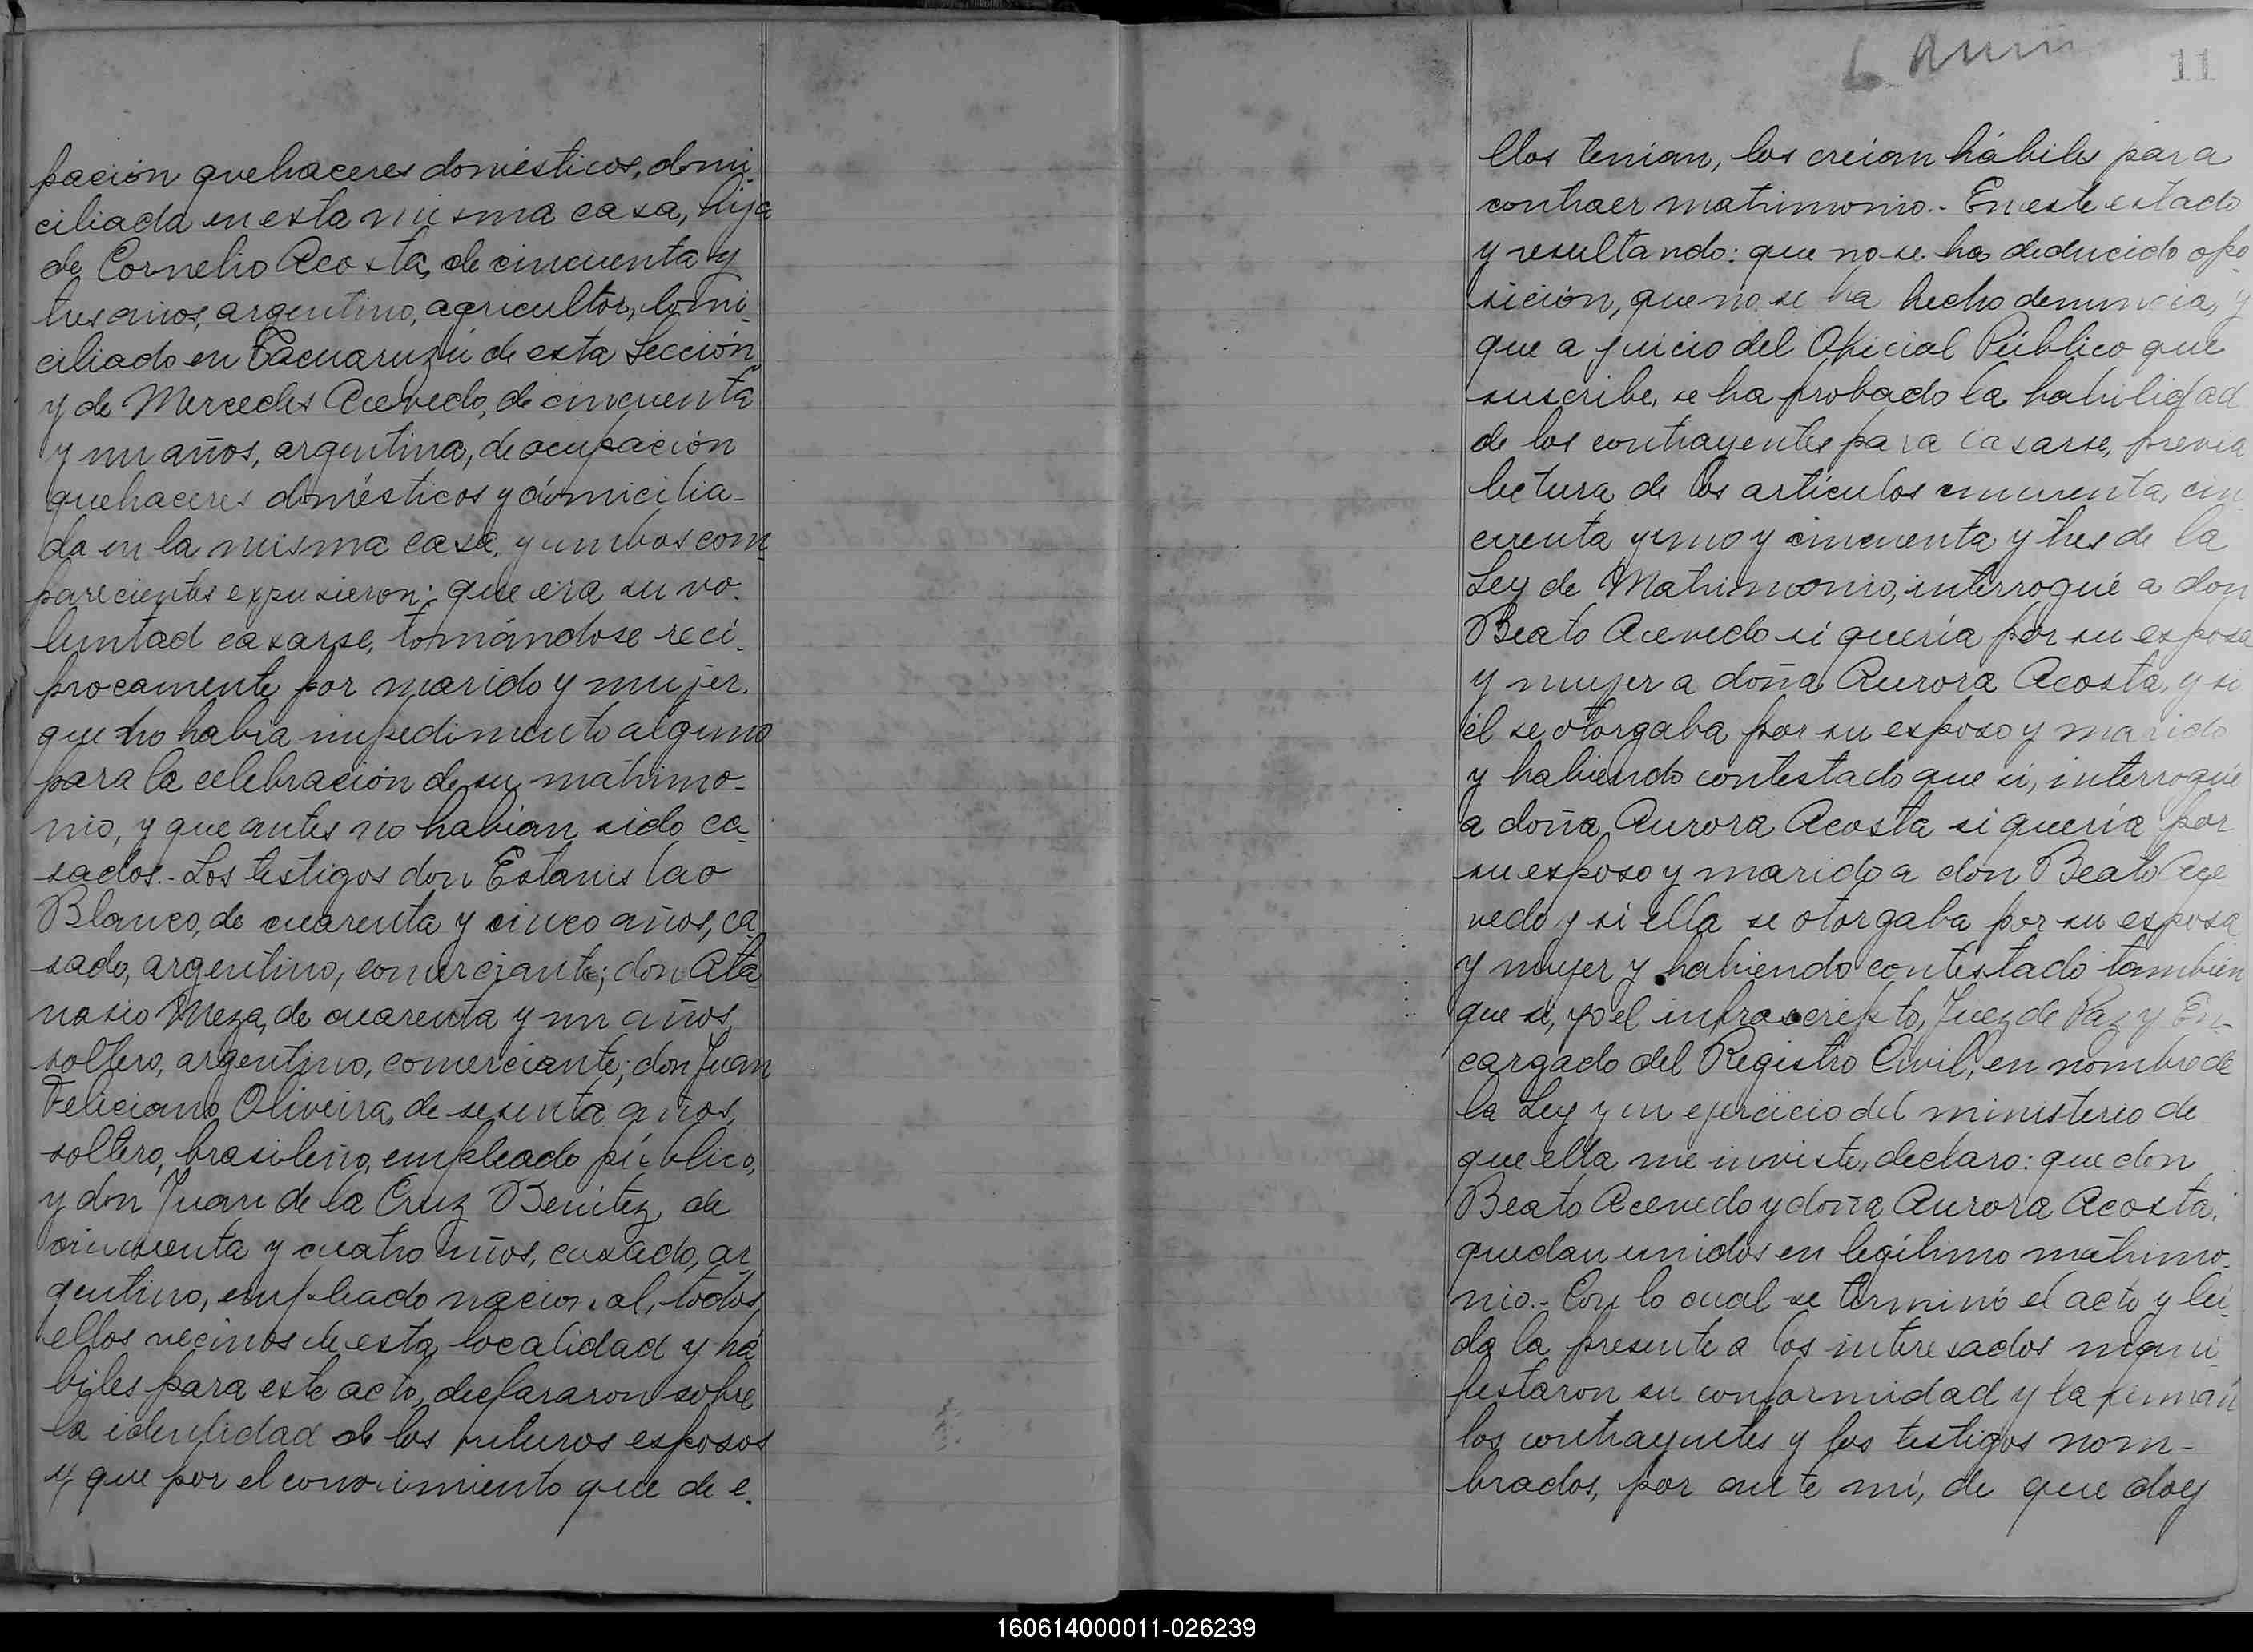 pación quehaceres domésticos, domi-
ciliada en esta misma casa, hija
de Cornelio Acosta, de cincuenta y
tres años, argentino, agricultor, domi-
ciliado en Tacuaruzú de esta Sección
y de Mercedes Acevedo, de cincuenta
y un años, argentina, de ocupación
quehaceres domésticos y domicilia-
da en la misma casa, y ambos com-
parecientes expusieron: que era su vo-
luntad casarse, tomándose recí-
procamente por marido y mujer.
que no había impedimento alguno
para la celebración de su matrimo-
nio, y que antes no habían sido ca-
sados.- Los testigos don Estanislao
Blanco, de cuarenta y cinco años, ca-
sado, argentino, comerciante; don Ata-
nasio Meza, de cuarenta y un años,
soltero, argentino, comerciante; don Juan
Feliciano Oliveira, de sesenta años,
soltero, brasileño, empleado público,
y don Juan de la Cruz Benitez, de
cincuenta y cuatro años, casado, ar-
gentino, empleado nacional, todos
ellos vecinos de esta localidad y há-
biles para este acto, declararon sobre
la identidad de los futuros esposos
y que por el conocimiento que de e-
11
llos tenían, los creían hábiles para
contraer matrimonio.- En este estado
y resultando: que no se ha deducido opo-
sición, que no se ha hecho denuncia, y
que a juicio del Oficial Público que
suscribe, se ha probado la habilidad
de los contrayentes para casarse, previa
lectura de los artículos cincuenta, cin
cuenta y uno y cincuenta y tres de la
Ley de Matrimonio, interrogué a don
Beato Acevedo si quería por su esposa
y mujer a doña Aurora Acosta, y si
él se otorgaba por su esposo y marido
y habiendo contestado que sí, interrogué
a doña Aurora Acosta si quería por
su esposo y marido a don Beato Ace
vedo y si ella se otorgaba por su esposa
y mujer y habiendo contestado también
que sí, yo el infrascripto, Juez de Paz y En-
cargado del Registro Civil, en nombre de
la Ley y en ejercicio del ministerio de
que ella me inviste, declaro: que don
Beato Acevedo y doña Aurora Acosta,
quedan unidos en legítimo matrimo-
nio.- Con lo cual se terminó el acto y leí-
da la presente a los interesados mani-
festaron su conformidad y la firman
los contrayentes y los testigos nom-
brados, por ante mí, de que doy
160614000011-026239